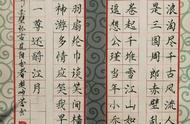 浪淘尽千古风流人
是三国周郎赤壁乱
卷起千堆雪江山如
遥想公瑾当年小乔
羽扇纶巾谈笑间樯
神游多情应笑我早
一尊还酹江月